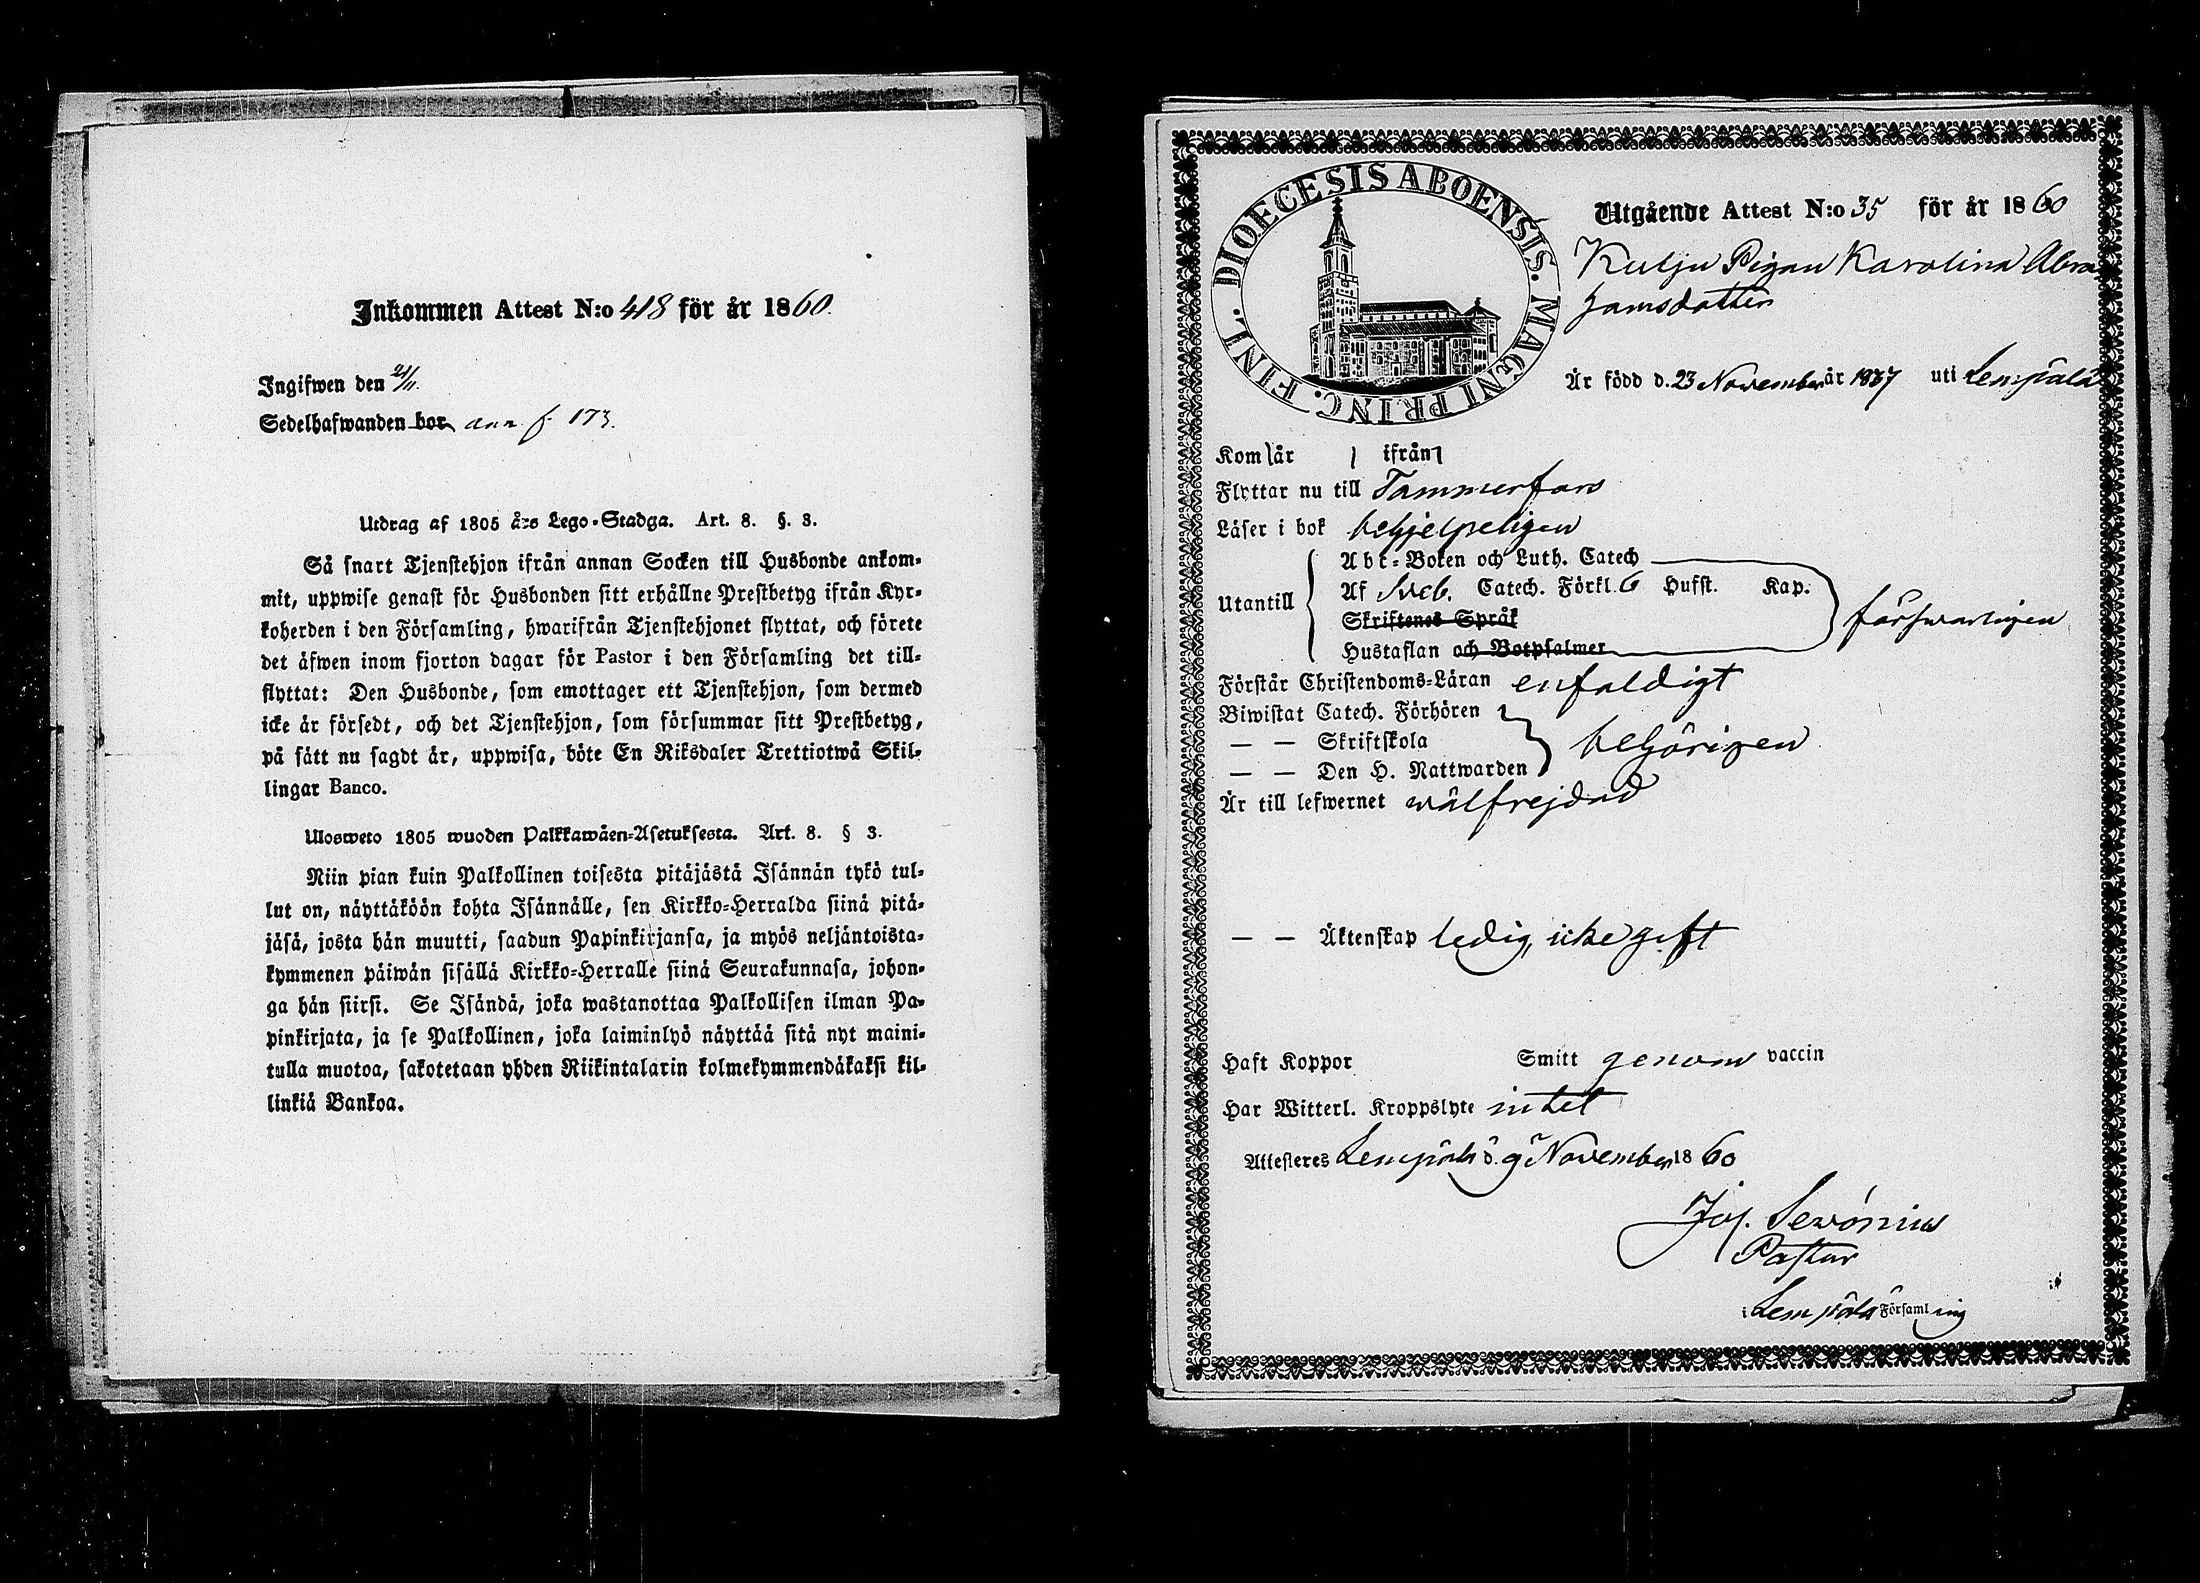 Inkommen Attest N:o 418 för år 1860.
Ingifwen den 21/11.
Sedelhafwanden bor ann f 173.
Utdrag af 1805 års Lego-Stadga. Art. 8. §. 3.
Så snart Tjenstehjon ifrån annan Socken till Husbonde ankom-
mit, uppwise genast för Husbonden sitt erhållne Prestbetyg ifrån Kyr-
koherden i den Församling, hwarifrån Tjenstehjonet flyttat, och förete
det äfwen inom fjorton dagar för Pastor i den Församling det till-
flyttat: Den Husbonde, som emottager ett Tjenstehjon, som dermed
icke är försedt, och det Tjenstehjon, som försummar sitt Prestbetyg,
på sätt nu sagdt är, uppwisa, böte En Riksdaler Trettiotwå Skil-
lingar Banco.
Ulosweto 1805 wuoden Palkkawäen-Asetuksesta. Art. 8. § 3.
Niin pian kuin Palkollinen toisesta pitäjästä Isännän tykö tul-
lut on, näyttäköön kohta Isännälle, sen Kirkko-Herralda siinä pitä-
jäsä, josta hän muutti, saadun Papinkirjansa, ja myös neljäntoista-
kymmenen päiwän sisällä Kirkko-Herralle siinä Seurakunnasa, johon-
ga hän siirsi. Se Isändä, joka wastanottaa Palkollisen ilman Pa-
pinkirjata, ja se Palkollinen, joka laiminlyö näyttää sitä nyt maini-
tulla muotoa, sakotetaan yhden Riikintalarin kolmekymmendäkaksi kil-
linkiä Bankoa.
DIOECESIS ABOENSIS. MAGNI PRINC. FINL.
Utgående Attest N:o 35 för år 1860
Kulju Pigan Karolina Abra
hamsdotter
Är född d. 23 November år 1837 uti Lempäälä
Kom år ifrån
Flyttar nu till Tammerfors
Läser i bok behjelpeligen
Utantill
Abc-Boken och Luth. Catech
Af Sveb. Catech. Förkl. 6 Hufst. Kap.
Skriftenes Språk
Hustaflan och Botpsalmer
försvarligen
Förstår Christendoms-Läran enfaldigt
Biwistat Catech. Förhören
— — Skriftskola
— — Den H. Nattwarden
behörigen
Är till lefwernet wälfrejdad
— — Äktenskap ledig, icke gift
Haft Koppor Smitt genom vaccin
Har Witterl. Kroppslyte intet
Attesteres Lempäälä d. 9 November 1860
Jos. Serónius
Pastor
i Lempäälä Församling